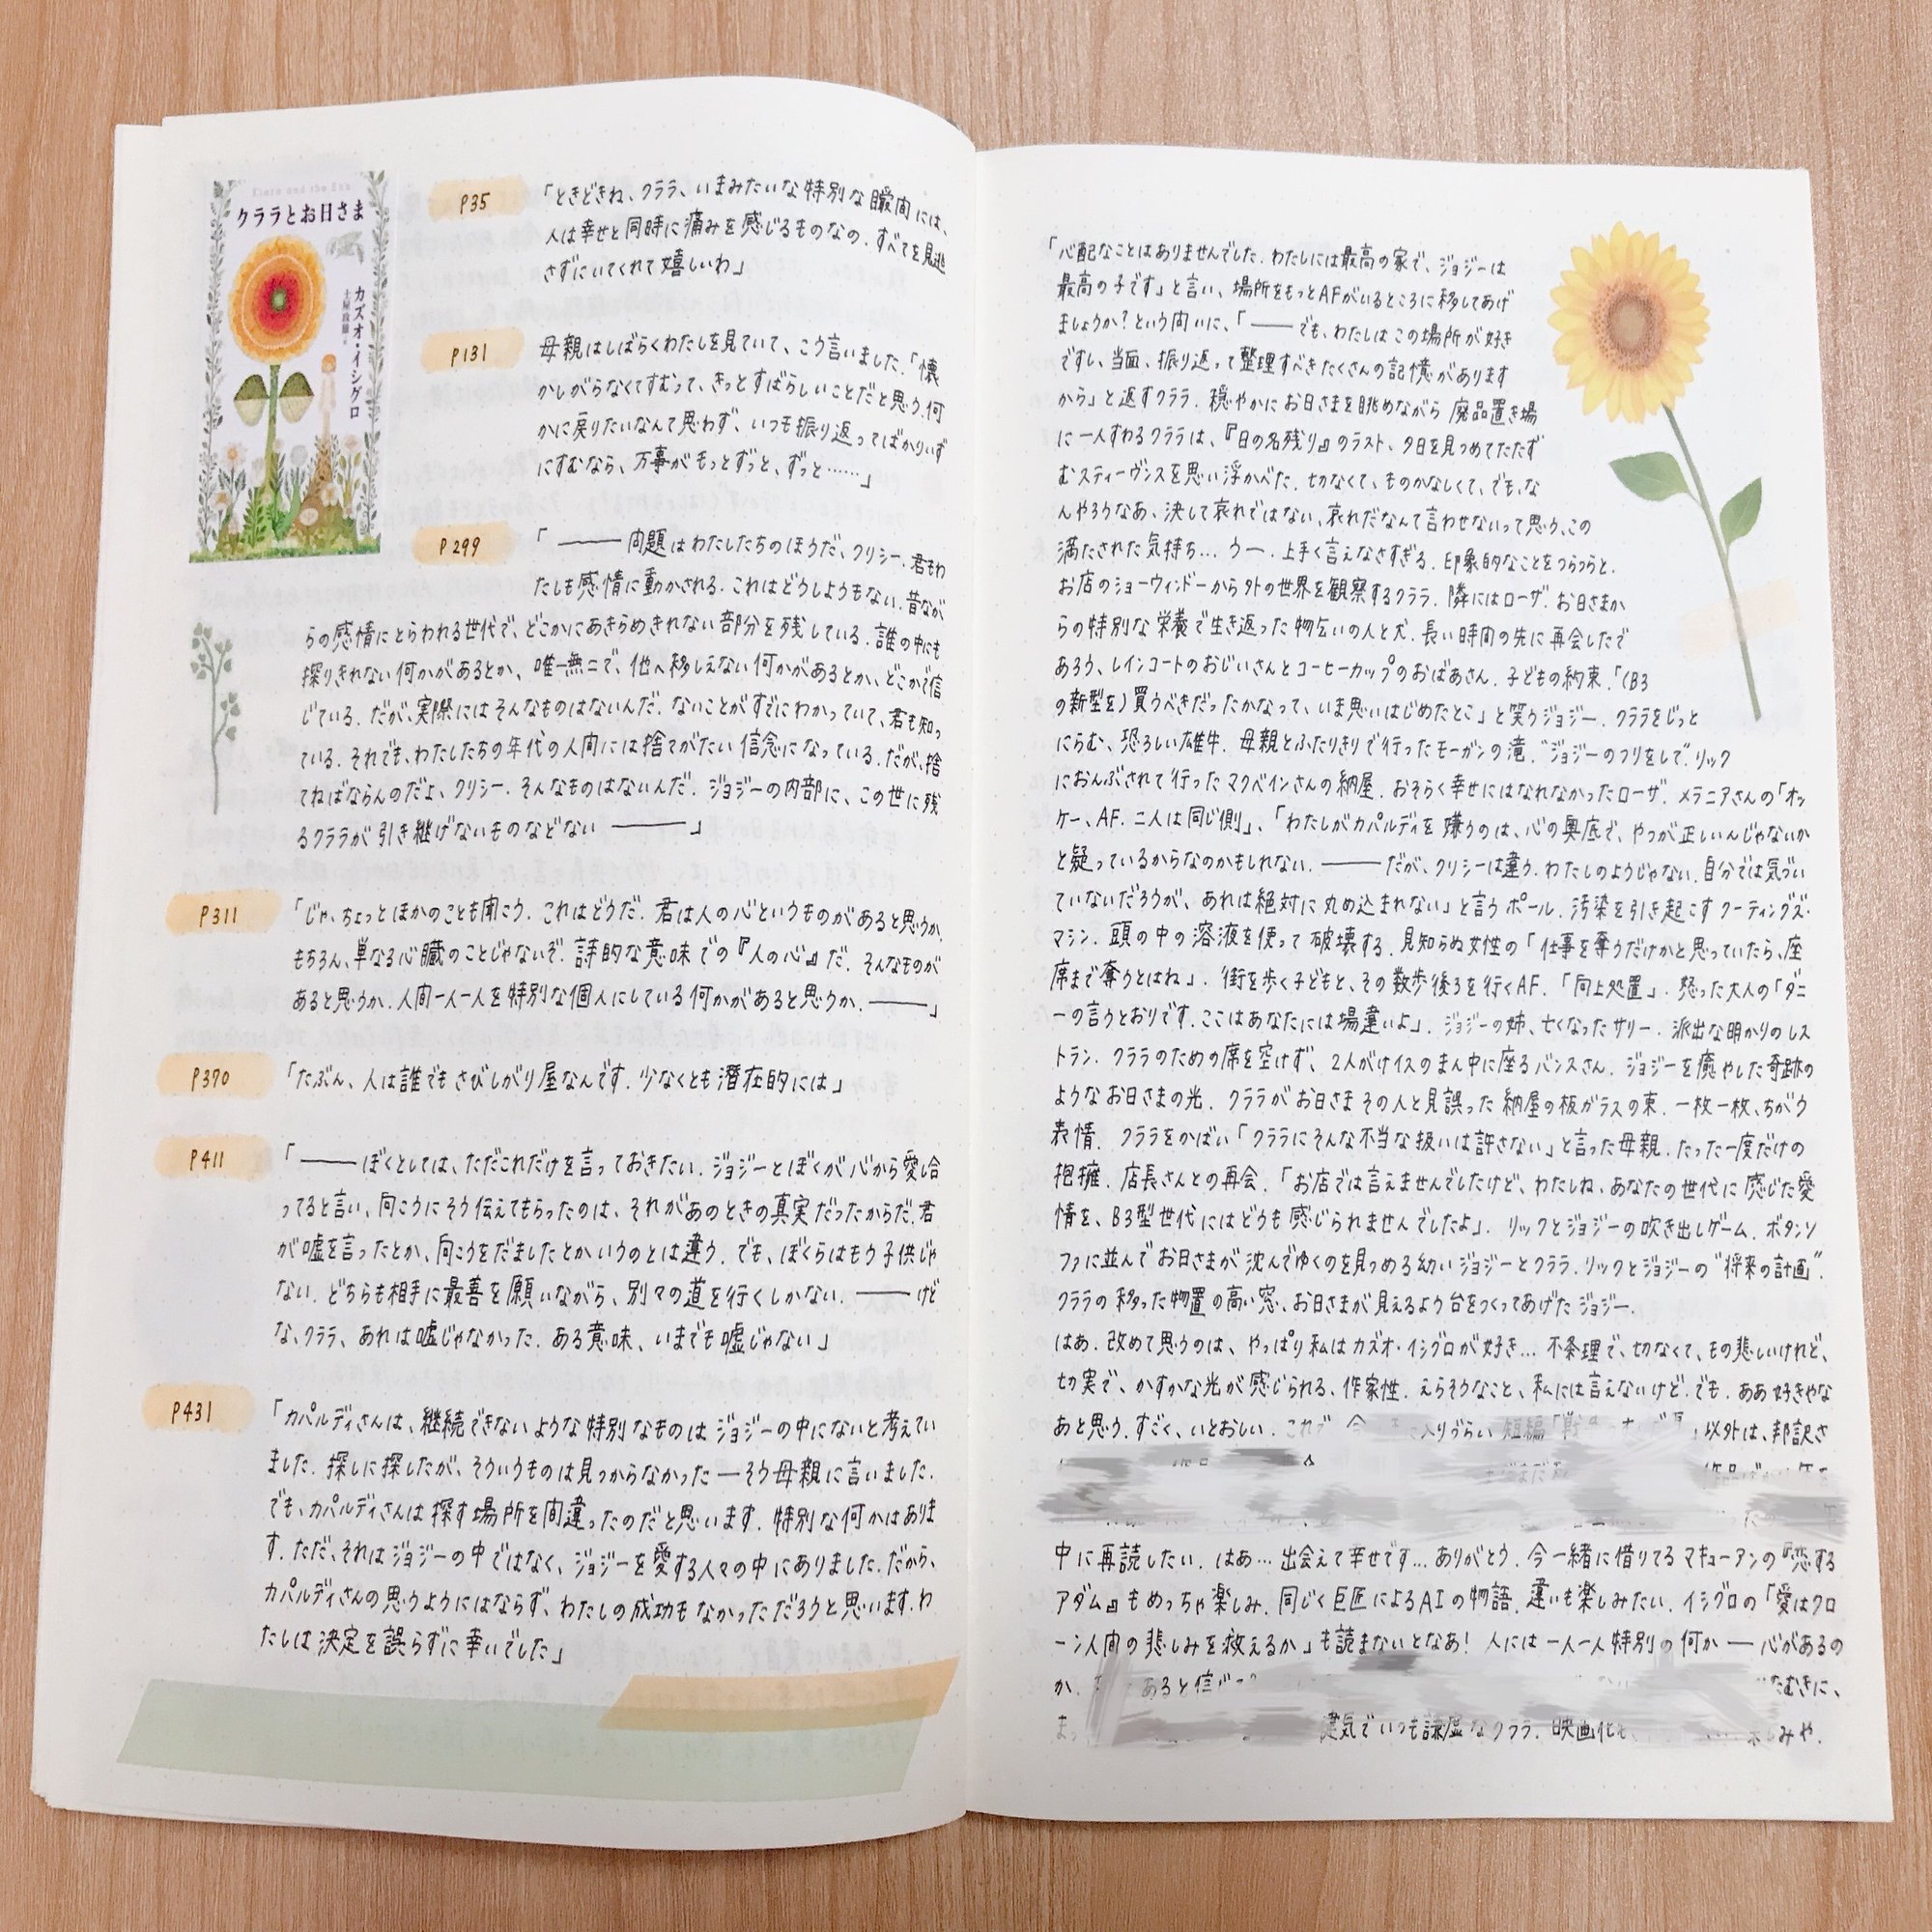 Klara and the Sun
クララとお日さま
カズオ・イシグロ
土屋政雄
P35
「ときどきね、クララ、いまみたいな特別な瞬間には、
人は幸せと同時に痛みを感じるものなの.すべてを見逃
さずにいてくれて嬉しいわ」
P131
母親はしばらくわたしを見ていて、こう言いました.「懐
かしがらなくてすむって、きっとすばらしいことだと思う.何
かに戻りたいなんて思わず、いつも振り返ってばかりいず
にすむなら、万事がもっとずっと、ずっと……」
P299
「――問題はわたしたちのほうだ、クリシー.君もわ
たしも感情に動かされる.これはどうしようもない.昔なが
らの感情にとらわれる世代で、どこかにあきらめきれない部分を残している.誰の中にも
探りきれない何かがあるとか、唯一無二で、他へ移しえない何かがあるとか、どこかで信
じている.だが、実際にはそんなものはないんだ.ないことがすでにわかっていて、君も知っ
ている.それでも、わたしたちの年代の人間には捨てがたい信念になっている.だが、捨
てねばならんのだよ、クリシー.そんなものはないんだ.ジョジーの内部に、この世に残
るクララが引き継げないものなどない――」
P311
「じゃ、ちょっとほかのことも聞こう.これはどうだ.君は人の心というものがあると思うか.
もちろん、単なる心臓のことじゃないぞ.詩的な意味での『人の心』だ.そんなものが
あると思うか.人間一人一人を特別な個人にしている何かがあると思うか.――」
P370
「たぶん、人は誰でもさびしがり屋なんです.少なくとも潜在的には」
P411
「――ぼくとしては、ただこれだけを言っておきたい.ジョジーとぼくが心から愛し合
ってると言い、向こうにそう伝えてもらったのは、それがあのときの真実だったからだ.君
が嘘を言ったとか、向こうをだましたとかいうのとは違う.でも、ぼくらはもう子供じゃ
ない.どちらも相手に最善を願いながら、別々の道を行くしかない.――けど
な、クララ、あれは嘘じゃなかった.ある意味、いまでも嘘じゃない」
P431
「カパルディさんは、継続できないような特別なものはジョジーの中にないと考えてい
ました.探しに探したが、そういうものは見つからなかった―そう母親に言いました.
でも、カパルディさんは探す場所を間違ったのだと思います.特別な何かはありま
す.ただ、それはジョジーの中ではなく、ジョジーを愛する人々の中にありました.だから、
カパルディさんの思うようにはならず、わたしの成功もなかっただろうと思います.わ
たしは決定を誤らずに幸いでした」
「心配なことはありませんでした.わたしには最高の家で、ジョジーは
最高の子です」と言い、場所をもっとAFがいるところに移してあげ
ましょうか?という問いに、「――でも、わたしはこの場所が好き
ですし、当面、振り返って整理すべきたくさんの記憶があります
から」と返すクララ.穏やかにお日さまを眺めながら廃品置き場
に一人すわるクララは、『日の名残り』のラスト、夕日を見つめてたたず
むスティーヴンスを思い浮かべた.切なくて、ものかなしくて、でも、な
んやろうなあ、決して哀れではない、哀れだなんて言わせないって思う、この
満たされた気持ち…うー.上手く言えなさすぎる.印象的なことをつらつらと.
お店のショーウィンドーから外の世界を観察するクララ.隣にはローザ.お日さまか
らの特別な栄養で生き返った物乞いの人と犬.長い時間の先に再会したで
あろう、レインコートのおじいさんとコーヒーカップのおばあさん.子どもの約束.「(B3
の新型を)買うべきだったかなって、いま思いはじめたとこ」と笑うジョジー.クララをじっと
にらむ、恐ろしい雄牛.母親とふたりきりで行ったモーガンの滝.“ジョジーのフリをして”.リック
におんぶされて行ったマクベインさんの納屋.おそらく幸せにはなれなかったローザ.メラニアさんの「オッ
ケー、AF.二人は同じ側」、「わたしがカパルディを嫌うのは、心の奥底で、やつが正しいんじゃないか
と疑っているからなのかもしれない.――だが、クリシーは違う.わたしのようじゃない.自分では気づい
ていないだろうが、あれは絶対に丸め込まれない」と言うポール.汚染を引き起こすクーティングズ・
マシン.頭の中の溶液を使って破壊する.見知らぬ女性の「仕事を奪うだけかと思っていたら、座
席まで奪うとはね」.街を歩く子どもと、その数歩後ろを行くAF.「向上処置」.怒った大人の「ダニ
ーの言うとおりです.ここはあなたには場違いよ」.ジョジーの姉、亡くなったサリー.派出な明かりのレス
トラン.クララのための席を空けず、2人がけイスのまん中に座るバンスさん.ジョジーを癒やした奇跡の
ようなお日さまの光.クララがお日さまその人と見誤った納屋の板ガラスの束.一枚一枚、ちがう
表情.クララをかばい「クララにそんな不当な扱いは許さない」と言った母親.たった一度だけの
抱擁.店長さんとの再会.「お店では言えませんでしたけど、わたしね、あなたの世代に感じた愛
情を、B3型世代にはどうも感じられませんでしたよ」.リックとジョジーの吹き出しゲーム.ボタンソ
ファに並んでお日さまが沈んでゆくのを見つめる幼いジョジーとクララ.リックとジョジーの“将来の計画”.
クララの移った物置の高い窓、お日さまが見えるよう台をつくってあげたジョジー.
はあ.改めて思うのは、やっぱり私はカズオ・イシグロが好き…不条理で、切なくて、もの悲しいけれど、
切実で、かすかな光が感じられる、作家性.えらそうなこと、私には言えないけど.でも.ああ好きやな
あと思う.すごく、いとおしい.これで 入りづらい短編 以外は、邦訳さ
中に再読したい.はあ…出会えて幸せです…ありがとう.今一緒に借りてるマキューアンの『恋する
アダム』もめっちゃ楽しみ.同じく巨匠によるAIの物語.違いも楽しみたい.イシグロの「愛はクロ
ーン人間の悲しみを救えるか」も読まないとなあ!人には一人一人特別の何か―心があるの
か. あると信 たむきに、
健気でいつも謙虚なクララ.映画化も しみや.